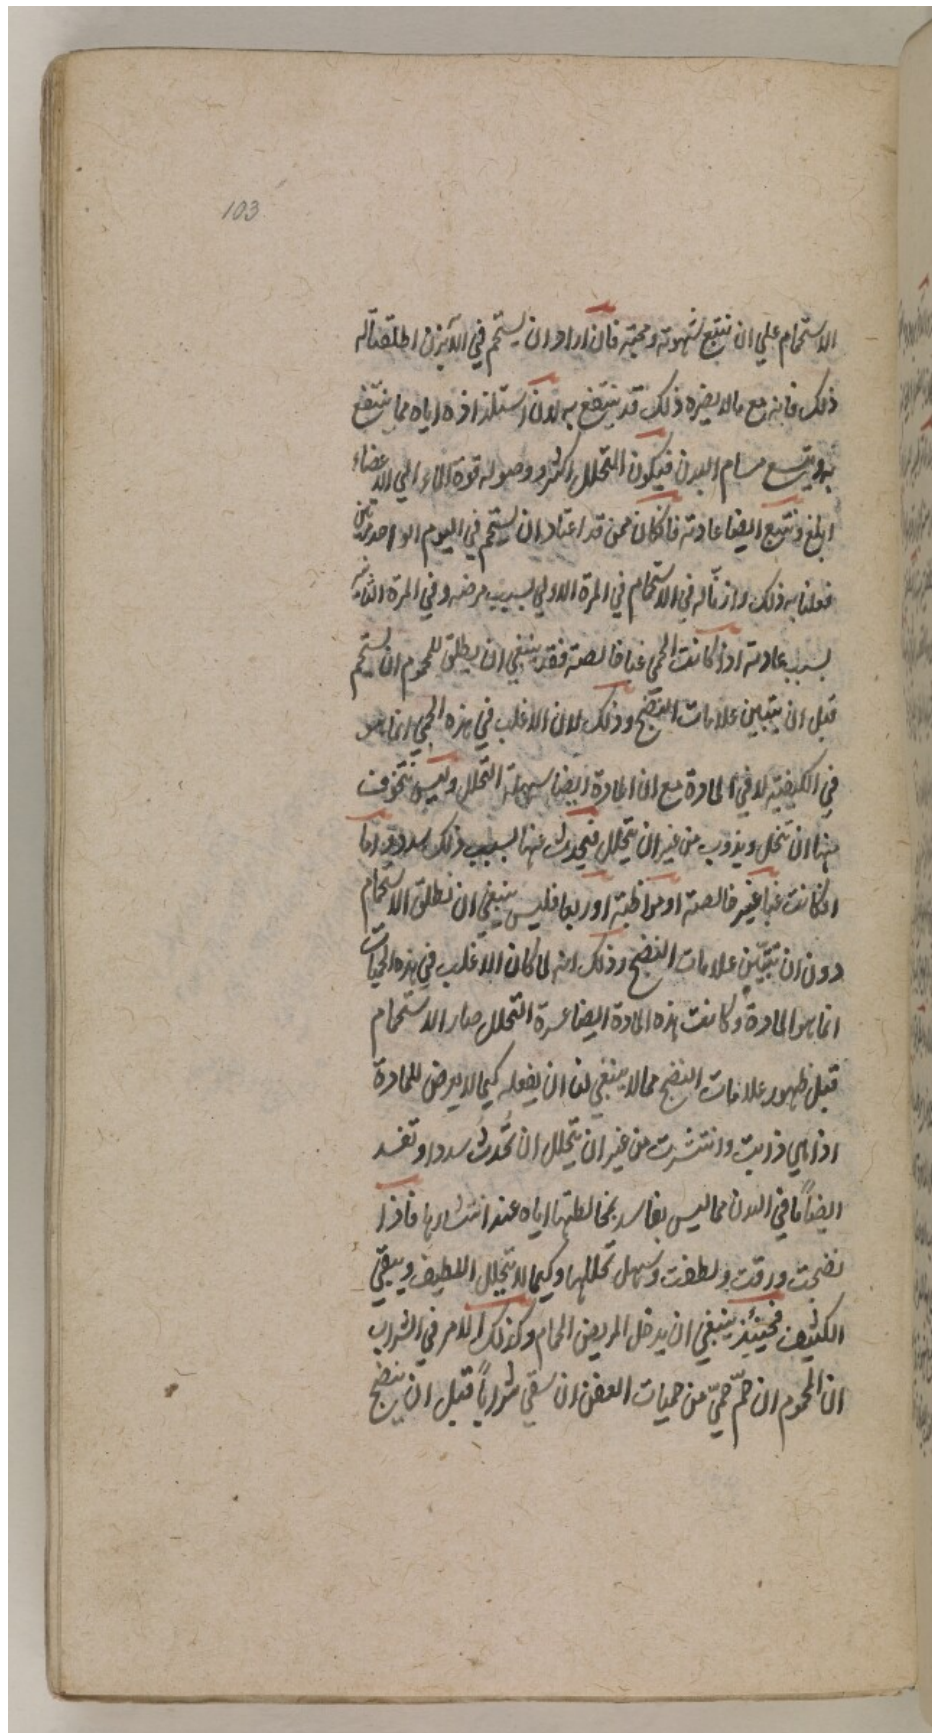 103
الاستحمام علي ان نتبع شهوته ومحبته فان اراد ان يستحم في الآبزن اطلقنا له
ذلك فانه مع مالا يضره ذلك قد ينتفع به لان استلذاذه اياه مما ينتفع
به ويتسع مسام البدن فيكون التحلل اكثر ووصوله قوة الماء الي الاعضاء
ابلغ ونتبع ايضا عادته فان كان ممن قد اعتاد ان يستحم في اليوم الواحد مرتين
فعلنا به ذلك واذنّا له في الاستحمام في المرة الاولي بسبب مرضه وفي المرة الثانية
بسبب عادته اذا كانت الحمي غبا خالصة فقد ينبغي ان يطلق للمحموم ان يستحم
قبل ان يتبين علامات النضج وذلك لان الاغلب في هذه الحمي انما هو
في الكيفية لا في المادة مع ان المادة ايضا سهلة التحلل وليس نتخوف
منها ان تنحل ويذوب من غير ان يتحلل فيحدث عنها بسبب ذلك سدد واما
اذ كانت غبا غير خالصة او مواظبة او ربعا فليس ينبغي ان نطلق الاستحمام
دون ان تتبيّن علامات النضج وذلك انه لما كان الاغلب في هذه الحميات
انما هو المادة وكانت هذه المادة ايضا عسرة التحلل صار الاستحمام
قبل ظهور علامات النضج مما لا ينبغي لنا ان يفعله كيما لا يعرض للمادة
اذا هي ذابت وانتشرت من غير ان يتحلل ان تُحدث سددا وتفسد
ايضاً ما في البدن مما ليس بفاسد بمخالطتها اياه عند انتشارها فاذا
نضجت ورقت ولطفت وسهل تحللها وكيما لا يتحلل اللطيف ويبقي
الكثيف فحينئذ ينبغي ان يدخل المريض الحمام وكذلك الامر في الشراب
ان المحموم ان حمّ حميّ من حميات العفن ان سقي شراباً قبل ان ينضج